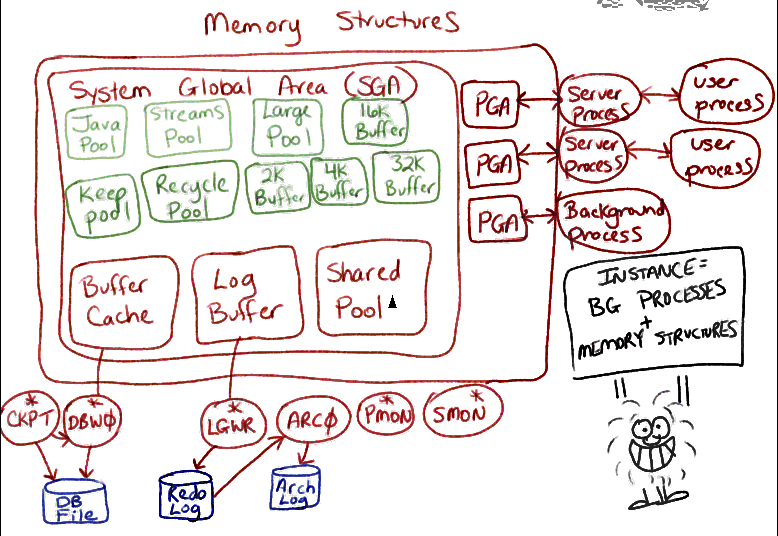 Memory Structures
System Global Area (SGA)
Java
Pool
Streams
Pool
Large
Pool
16K
Buffer
Keep
pool
Recycle
Pool
2K
Buffer
4K
Buffer
32K
Buffer
Buffer
Cache
Log
Buffer
Shared
Pool
PGA
Server
Process
user
process
PGA
Server
process
user
process
PGA
Background
Process
INSTANCE=
BG PROCESSES
+
MEMORY STRUCTURES
*
CKPT
*
DBWØ
*
LGWR
ARCØ
*
PMON
*
SMON
DB
File
Redo
Log
Arch
Log